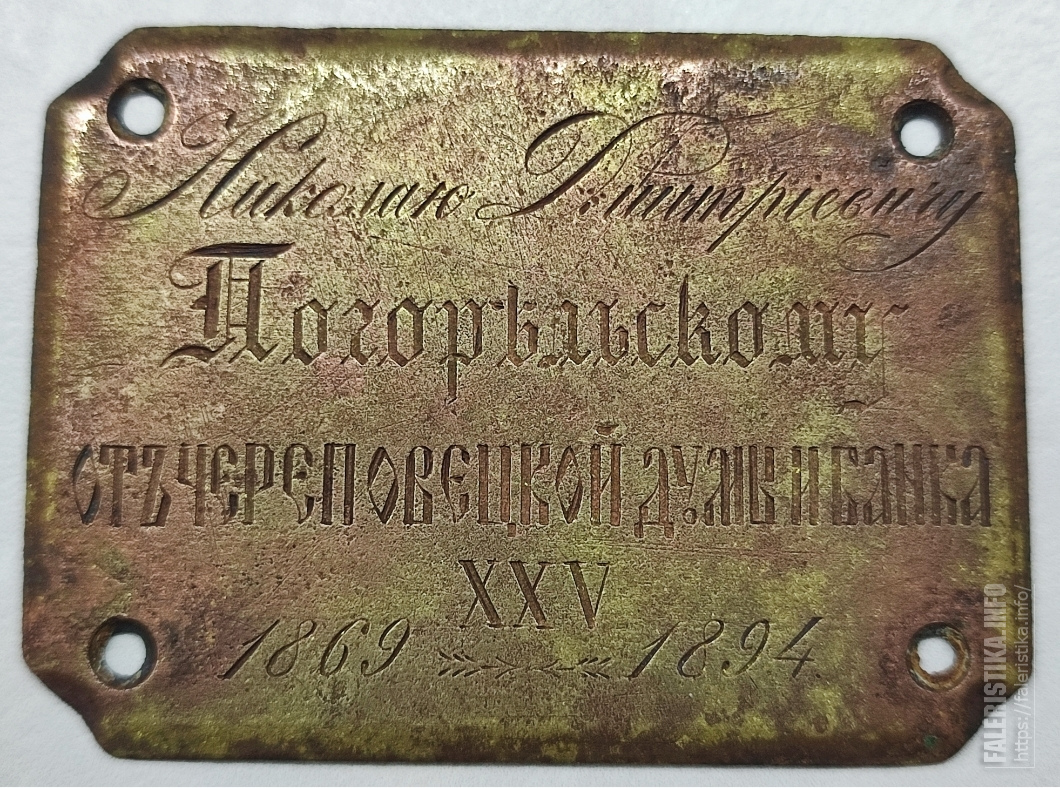 Николаю Дмитріевичу
Погорѣльскому
ОТЪ ЧЕРЕПОВЕЦКОЙ ДУМЫ И БАНКА
XXV
1869 1894
FALERISTIKA.INFO
https://faleristika.info/